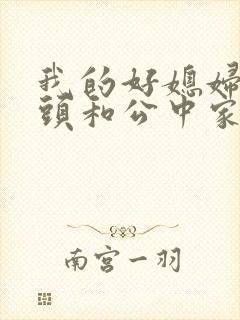 我的好媳妇
頭和公中家
南宫一羽